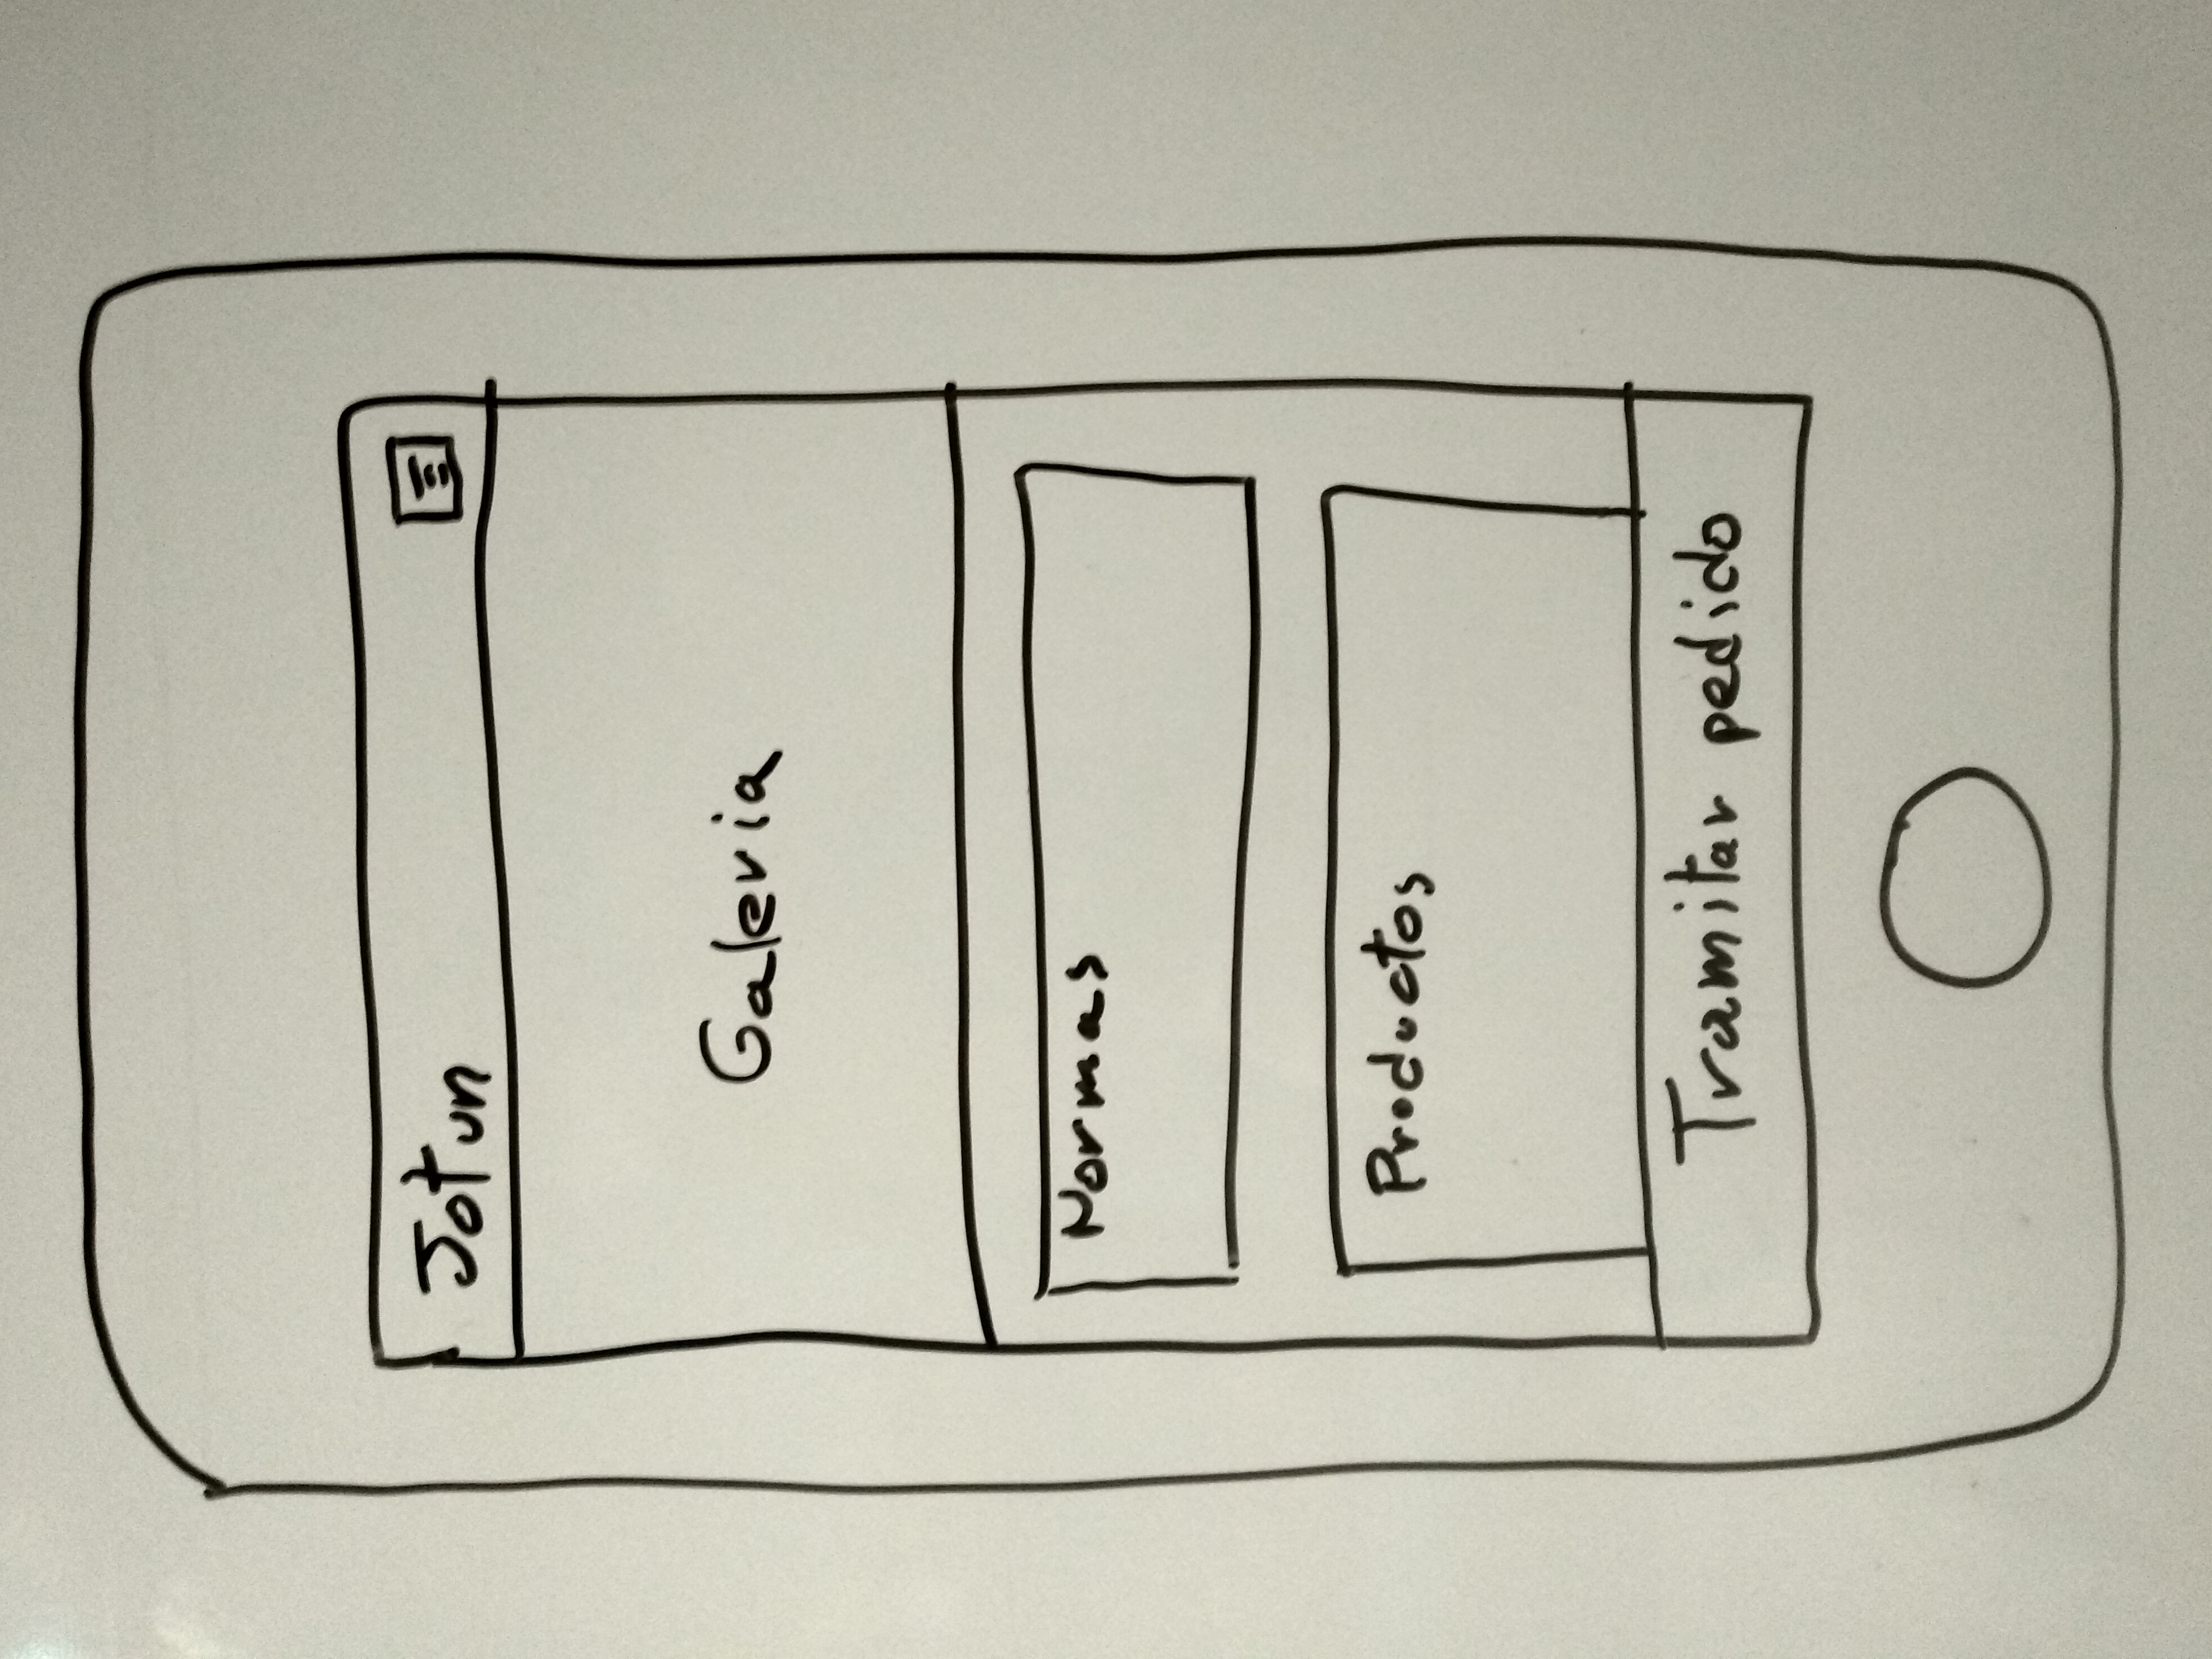 Jotun
Galeria
Normas
Productos
Tramitar pedido